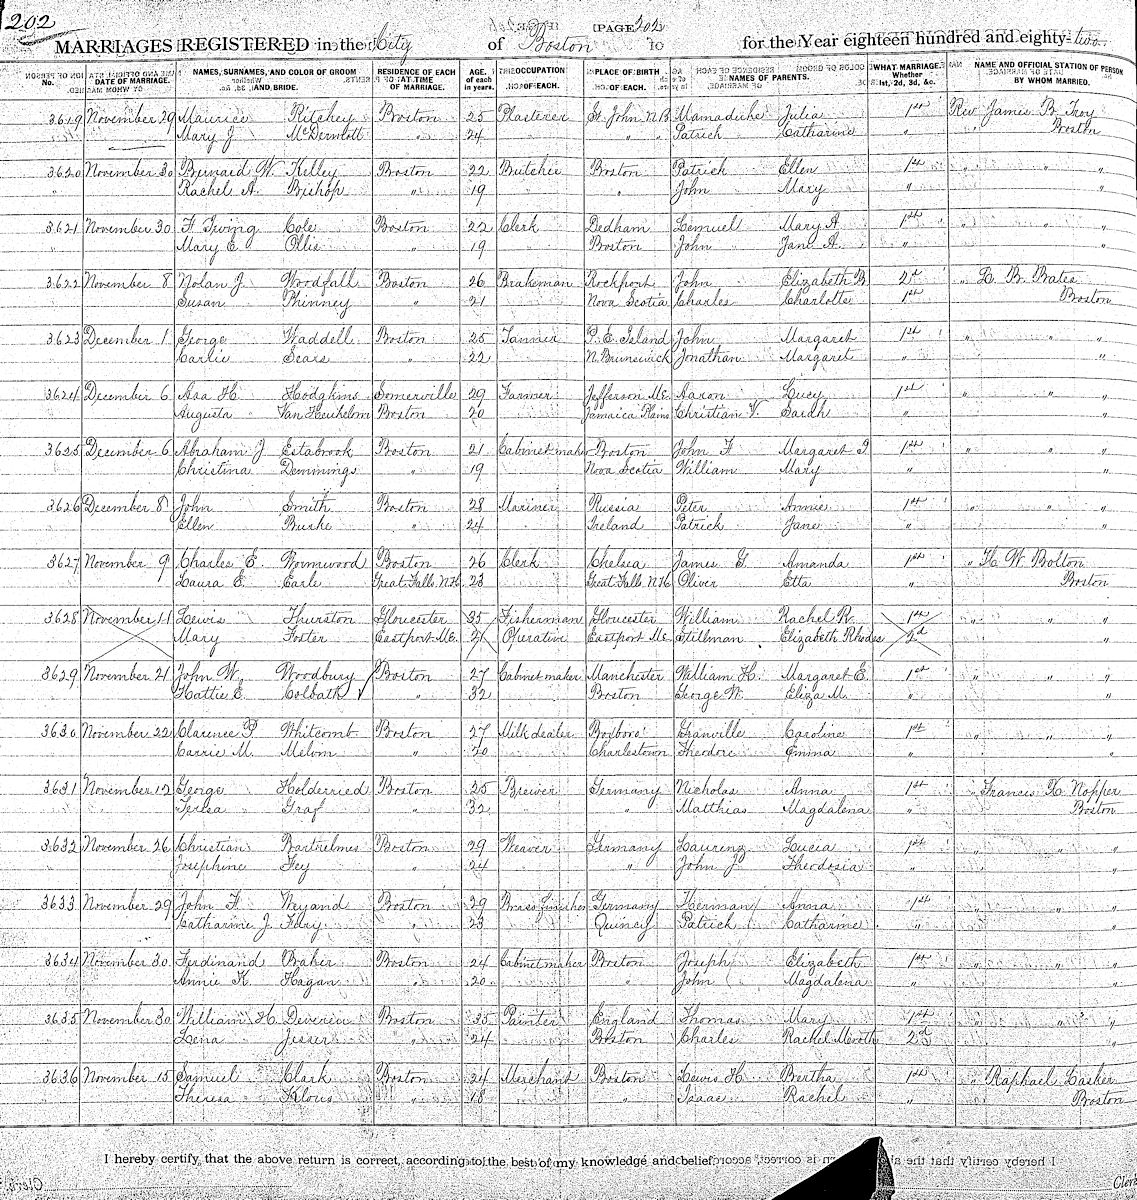 202
(PAGE 202)
MARRIAGES REGISTERED in the City of Boston for the Year eighteen hundred and eighty-two.
No. DATE OF MARRIAGE. NAMES, SURNAMES, AND COLOR OF GROOM AND BRIDE. RESIDENCE OF EACH AT TIME OF MARRIAGE. AGE. of each in years. OCCUPATION OF EACH. PLACE OF BIRTH OF EACH. NAMES OF PARENTS. WHAT MARRIAGE. Whether 1st, 2d, 3d, &c. NAME AND OFFICIAL STATION OF PERSON BY WHOM MARRIED.
3619 November 29 Maurice Ritchey Boston 25 Plasterer St. John N.B. Mamaduke Julia 1st Rev James B. Troy
Mary J McDermott " 24 Patrick Catharine " Boston
3620 November 30 Bernard W. Kelley Boston 22 Butcher Boston Patrick Ellen 1st " " "
Rachel A. Bishop " 19 " John Mary " "
3621 November 30 F. Irving Cole Boston 22 Clerk Dedham Lemuel Mary A. 1st " " "
Mary E. Ollis " 19 Boston John Jane A. " "
3622 November 8 Nolan J Woodfall Boston 26 Brakeman Rockport John Elizabeth B 2d " L. B. Bates
Susan Phinney " 21 Nova Scotia Charles Charlotte 1st Boston
3623 December 1 George Waddell Boston 25 Tanner P. E. Island John Margaret 1st " " "
Carlie Sears " 22 N. Brunswick Jonathan Margaret " "
3624 December 6 Asa H. Hodgkins Somerville 29 Farmer Jefferson Me. Aaron Lucy 1st " " "
Augusta Van Heukelom Boston 20 Jamaica Plain Christian V. Sarah " "
3625 December 6 Abraham J Estabrook Boston 21 Cabinet maker Boston John F Margaret I 1st " " "
Christina Demmings " 19 Nova Scotia William Mary " "
3626 December 8 John Smith Boston 28 Mariner Russia Peter Annie 1st " " "
Ellen Burke " 24 Ireland Patrick Jane " "
3627 November 9 Charles E. Wormwood Boston 26 Clerk Chelsea James G. Amanda 1st " H. W. Bolton
Laura E. Earle Great Falls N.H. 23 Great Falls N.H. Oliver Etta " Boston
3628 November 11 Lewis Thurston Gloucester 35 Fisherman Gloucester William Rachel R. 1st " " "
Mary Foster Eastport Me. 21 Operative Eastport Me. Stillman Elizabeth Rhodes 2d "
3629 November 21 John W. Woodbury Boston 27 Cabinet maker Manchester William H. Margaret E. 1st " " "
Hattie E. Colbath " 32 Boston George W. Eliza M. " "
3630 November 22 Clarence P. Whitcomb Boston 27 Milk dealer Boxboro' Granville Caroline 1st " " "
Carrie M. Melvin " 20 Charlestown Theodore Emma " "
3631 November 12 George Holderried Boston 25 Brewer Germany Nicholas Anna 1st " Francis X. Nopper
Teresa Graf " 32 " Matthias Magdalena " Boston
3632 November 26 Christian Barthelmes Boston 29 Weaver Germany Laurenz Lucia 1st " " "
Josephine Fey " 24 " John J Theodosia " "
3633 November 29 John F. Weyand Boston 29 Brass finisher Germany Herman Anna 1st " " "
Catharine J. Feary " 23 Quincy Patrick Catharine " "
3634 November 30 Ferdinand Baker Boston 24 Cabinet maker Boston Joseph Elizabeth 1st " " "
Annie K. Hagan " 20 " John Magdalena " "
3635 November 30 William H Deverin Boston 35 Painter England Thomas Mary 1st " " "
Lena Jesser " 24 Boston Charles Rachel Meroth 2d "
3636 November 15 Samuel Clark Boston 24 Merchant Boston Lewis H Bertha 1st " Raphael Lasker
Theresa Klous " 18 " Isaac Rachel " Boston
I hereby certify that the above return is correct, according to the best of my knowledge and belief
Clerk